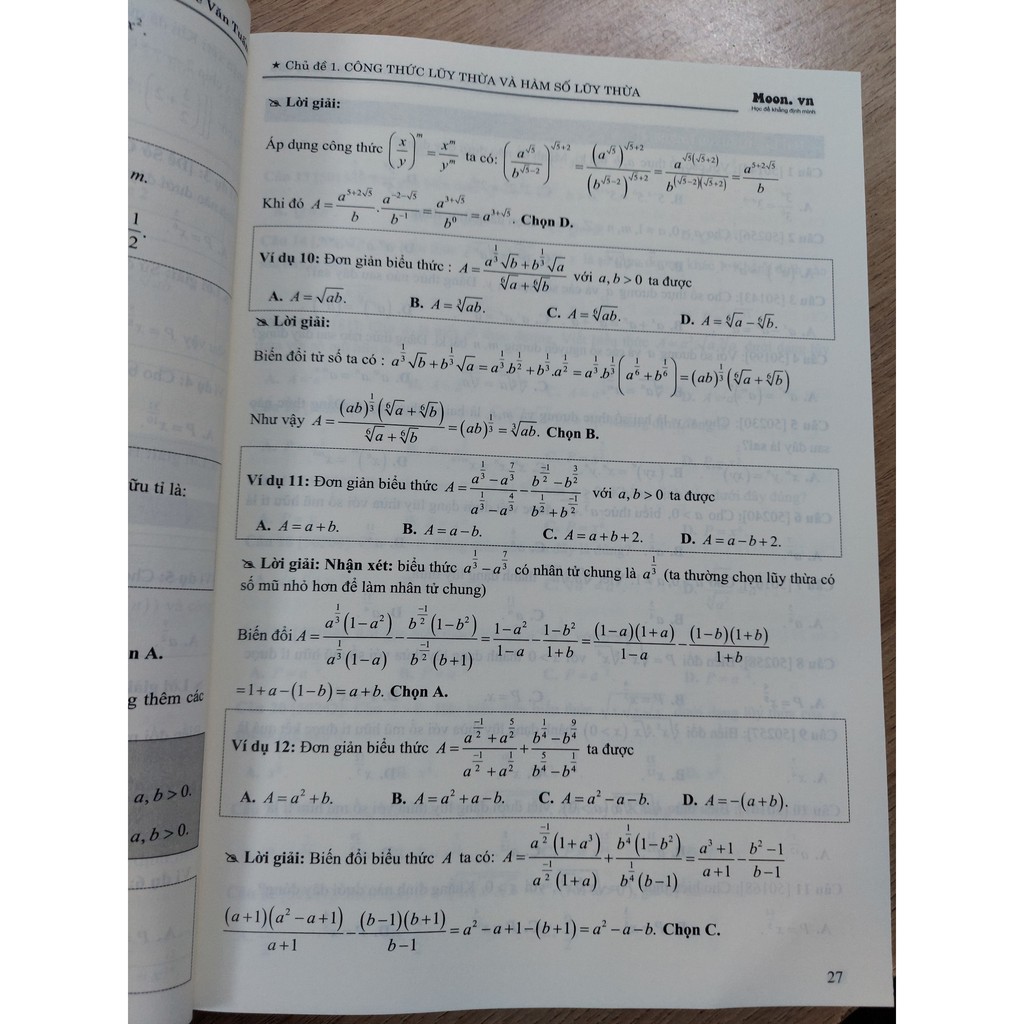 Văn Tuấn
x².
m.
1/2.
ữu tỉ là:
n A.
g thêm các
a, b > 0.
a, b > 0.
★ Chủ đề 1. CÔNG THỨC LŨY THỪA VÀ HÀM SỐ LŨY THỪA
Moon.vn
Học để khẳng định mình
Lời giải:
Áp dụng công thức (x/y)^m = x^m/y^m ta có: (a^(√5)/b^(√5-2))^(√5+2) = (a^(√5))^(√5+2)/(b^(√5-2))^(√5+2) = a^(√5(√5+2))/b^((√5-2)(√5+2)) = a^(5+2√5)/b
Khi đó A = a^(5+2√5)/b . a^(-2-√5)/b^(-1) = a^(3+√5)/b^0 = a^(3+√5). Chọn D.
Ví dụ 10: Đơn giản biểu thức : A = (a^(1/3)√b + b^(1/3)√a)/(⁶√a + ⁶√b) với a, b > 0 ta được
A. A = √ab. B. A = ³√ab. C. A = ⁶√ab. D. A = ⁶√a − ⁶√b.
Lời giải:
Biến đổi tử số ta có : a^(1/3)√b + b^(1/3)√a = a^(1/3).b^(1/2) + b^(1/3).a^(1/2) = a^(1/3).b^(1/3)(a^(1/6) + b^(1/6)) = (ab)^(1/3)(⁶√a + ⁶√b)
Như vậy A = (ab)^(1/3)(⁶√a + ⁶√b)/(⁶√a + ⁶√b) = (ab)^(1/3) = ³√ab. Chọn B.
Ví dụ 11: Đơn giản biểu thức A = (a^(1/3) − a^(7/3))/(a^(1/3) − a^(4/3)) − (b^(-1/2) − b^(3/2))/(b^(1/2) + b^(-1/2)) với a, b > 0 ta được
A. A = a + b. B. A = a − b. C. A = a + b + 2. D. A = a − b + 2.
Lời giải: Nhận xét: biểu thức a^(1/3) − a^(7/3) có nhân tử chung là a^(1/3) (ta thường chọn lũy thừa có
số mũ nhỏ hơn để làm nhân tử chung)
Biến đổi A = a^(1/3)(1 − a²)/(a^(1/3)(1 − a)) − b^(-1/2)(1 − b²)/(b^(-1/2)(b + 1)) = (1 − a²)/(1 − a) − (1 − b²)/(1 + b) = (1 − a)(1 + a)/(1 − a) − (1 − b)(1 + b)/(1 + b)
= 1 + a − (1 − b) = a + b. Chọn A.
Ví dụ 12: Đơn giản biểu thức A = (a^(-1/2) + a^(5/2))/(a^(-1/2) + a^(1/2)) + (b^(1/4) − b^(9/4))/(b^(5/4) − b^(1/4)) ta được
A. A = a² + b. B. A = a² + a − b. C. A = a² − a − b. D. A = −(a + b).
Lời giải: Biến đổi biểu thức A ta có: A = a^(-1/2)(1 + a³)/(a^(-1/2)(1 + a)) + b^(1/4)(1 − b²)/(b^(1/4)(b − 1)) = (a³ + 1)/(a + 1) − (b² − 1)/(b − 1)
(a + 1)(a² − a + 1)/(a + 1) − (b − 1)(b + 1)/(b − 1) = a² − a + 1 − (b + 1) = a² − a − b. Chọn C.
27